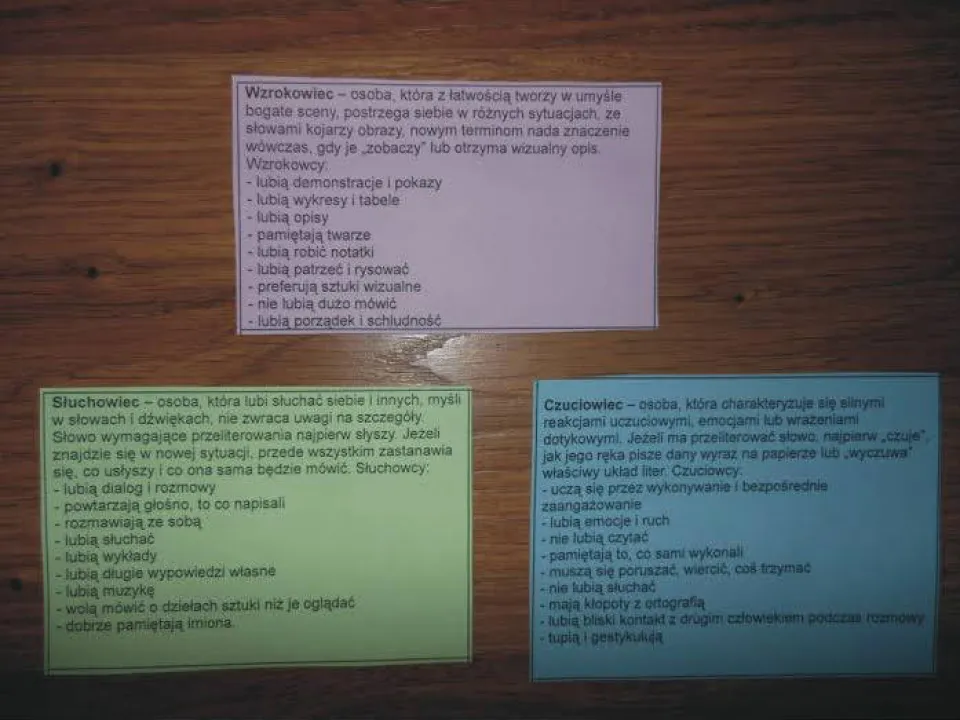 Wzrokowiec – osoba, która z łatwością tworzy w umyśle
bogate sceny, postrzega siebie w różnych sytuacjach, ze
słowami kojarzy obrazy, nowym terminom nada znaczenie
wówczas, gdy je „zobaczy” lub otrzyma wizualny opis.
Wzrokowcy:
- lubią demonstracje i pokazy
- lubią wykresy i tabele
- lubią opisy
- pamiętają twarze
- lubią robić notatki
- lubią patrzeć i rysować
- preferują sztuki wizualne
- nie lubią dużo mówić
- lubią porządek i schludność
Słuchowiec – osoba, która lubi słuchać siebie i innych, myśli
w słowach i dźwiękach, nie zwraca uwagi na szczegóły.
Słowo wymagające przeliterowania najpierw słyszy. Jeżeli
znajdzie się w nowej sytuacji, przede wszystkim zastanawia
się, co usłyszy i co ona sama będzie mówić. Słuchowcy:
- lubią dialog i rozmowy
- powtarzają głośno, to co napisali
- rozmawiają ze sobą
- lubią słuchać
- lubią wykłady
- lubią długie wypowiedzi własne
- lubią muzykę
- wolą mówić o dziełach sztuki niż je oglądać
- dobrze pamiętają imiona.
Czuciowiec – osoba, która charakteryzuje się silnymi
reakcjami uczuciowymi, emocjami lub wrażeniami
dotykowymi. Jeżeli ma przeliterować słowo, najpierw „czuje”,
jak jego ręka pisze dany wyraz na papierze lub „wyczuwa”
właściwy układ liter. Czuciowcy:
- uczą się przez wykonywanie i bezpośrednie
zaangażowanie
- lubią emocje i ruch
- nie lubią czytać
- pamiętają to, co sami wykonali
- muszą się poruszać, wiercić, coś trzymać
- nie lubią słuchać
- mają kłopoty z ortografią
- lubią bliski kontakt z drugim człowiekiem podczas rozmowy
- tupią i gestykulują